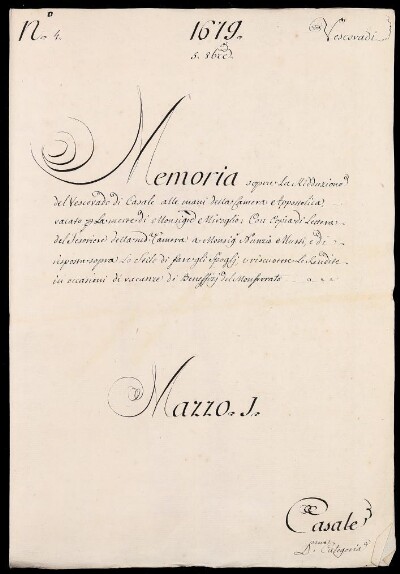 N.° 4.
1679.
5. 8bre
Vescovadi
Memoria sopra La Ridduzione
del Vescovado di Casale alle mani della Camera Appostolica
vacato p La morte di Monsig.r Miroglio. Con Copia di Lettera
del Tesoriere della sud.a Camera a Monsig. Nunzio Mutti, e di
risposta sopra lo stile di fare gli Spoglj e riscuotere le Rendite
in occasioni di vacanze di Beneffizj del Monferrato
Mazzo. 1.
Casale
Categoria